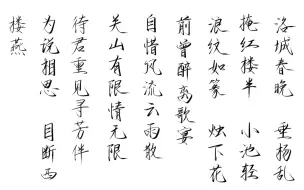 洛城春晚 垂杨乱
掩红楼半 小池轻
浪纹如篆 烛下花
前曾醉离歌宴
自惜风流云雨散
关山有限情无限
待君重见寻芳伴
为说相思 目断西
楼燕